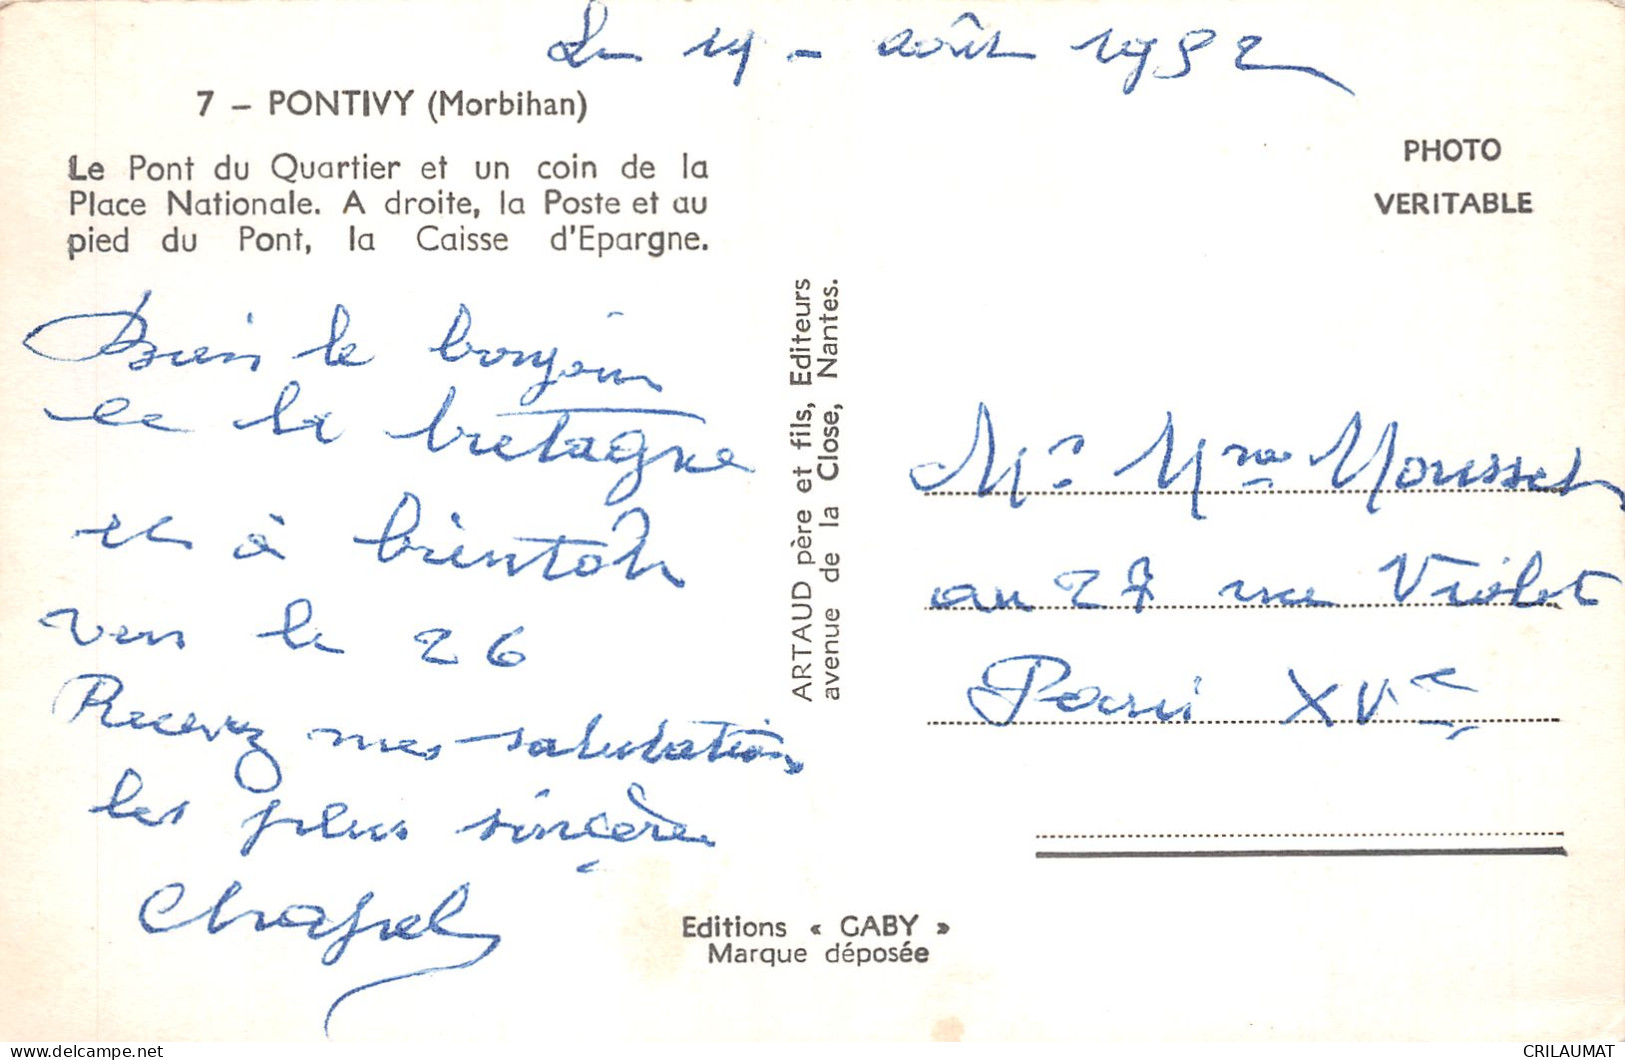 Le 14 - août 1952
7 – PONTIVY (Morbihan)
Le Pont du Quartier et un coin de la
Place Nationale. A droite, la Poste et au
pied du Pont, la Caisse d'Epargne.
Bien le bonjour
de la bretagne
et à bientôt
vers le 26
Recevez mes salutations
les plus sincère
Chapel
ARTAUD père et fils, Editeurs
avenue de la Close, Nantes.
Editions « GABY »
Marque déposée
PHOTO
VERITABLE
Mr Mme Mousset
au 27 rue Violet
Paris XVe
CRILAUMAT